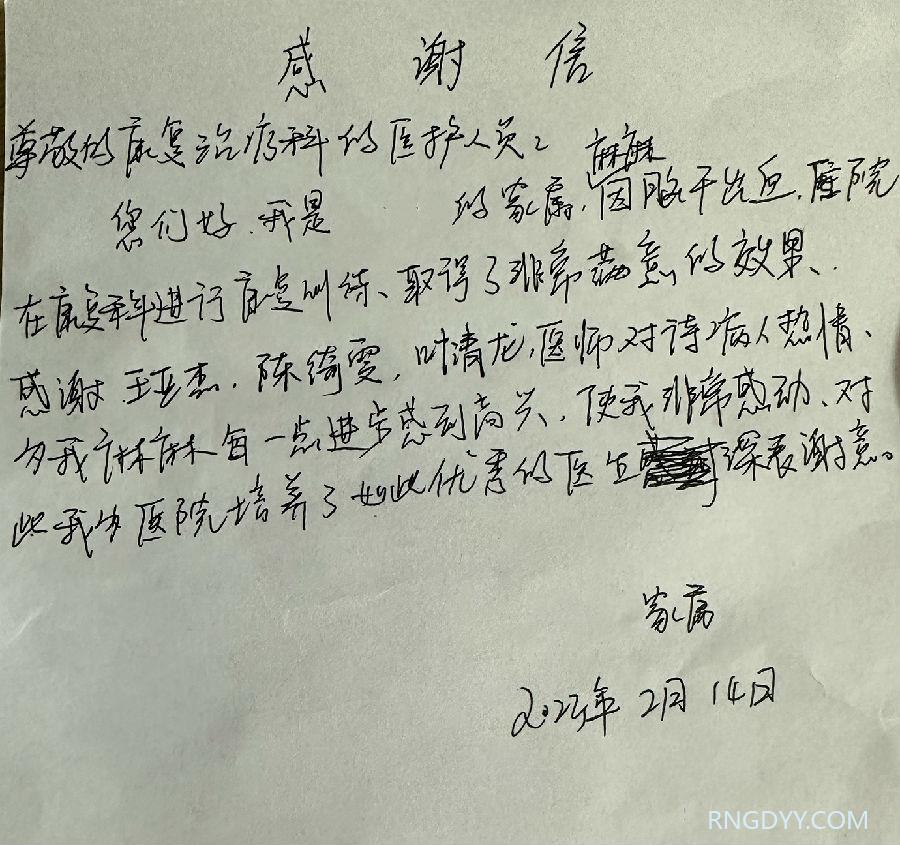 感谢信
尊敬的康复治疗科的医护人员：
麻麻
您们好、我是 的家属，因脑干出血、住院
在康复科进行康复训练、取得了非常满意的效果、
感谢王亚杰、陈绮雯，叶清龙，医师对待病人热情、
为我麻麻每一点进步感到高兴、使我非常感动、对
此我为医院培养了如此优秀的医生 深表谢意。
家属
2023年2月14日
RNGDYY.COM